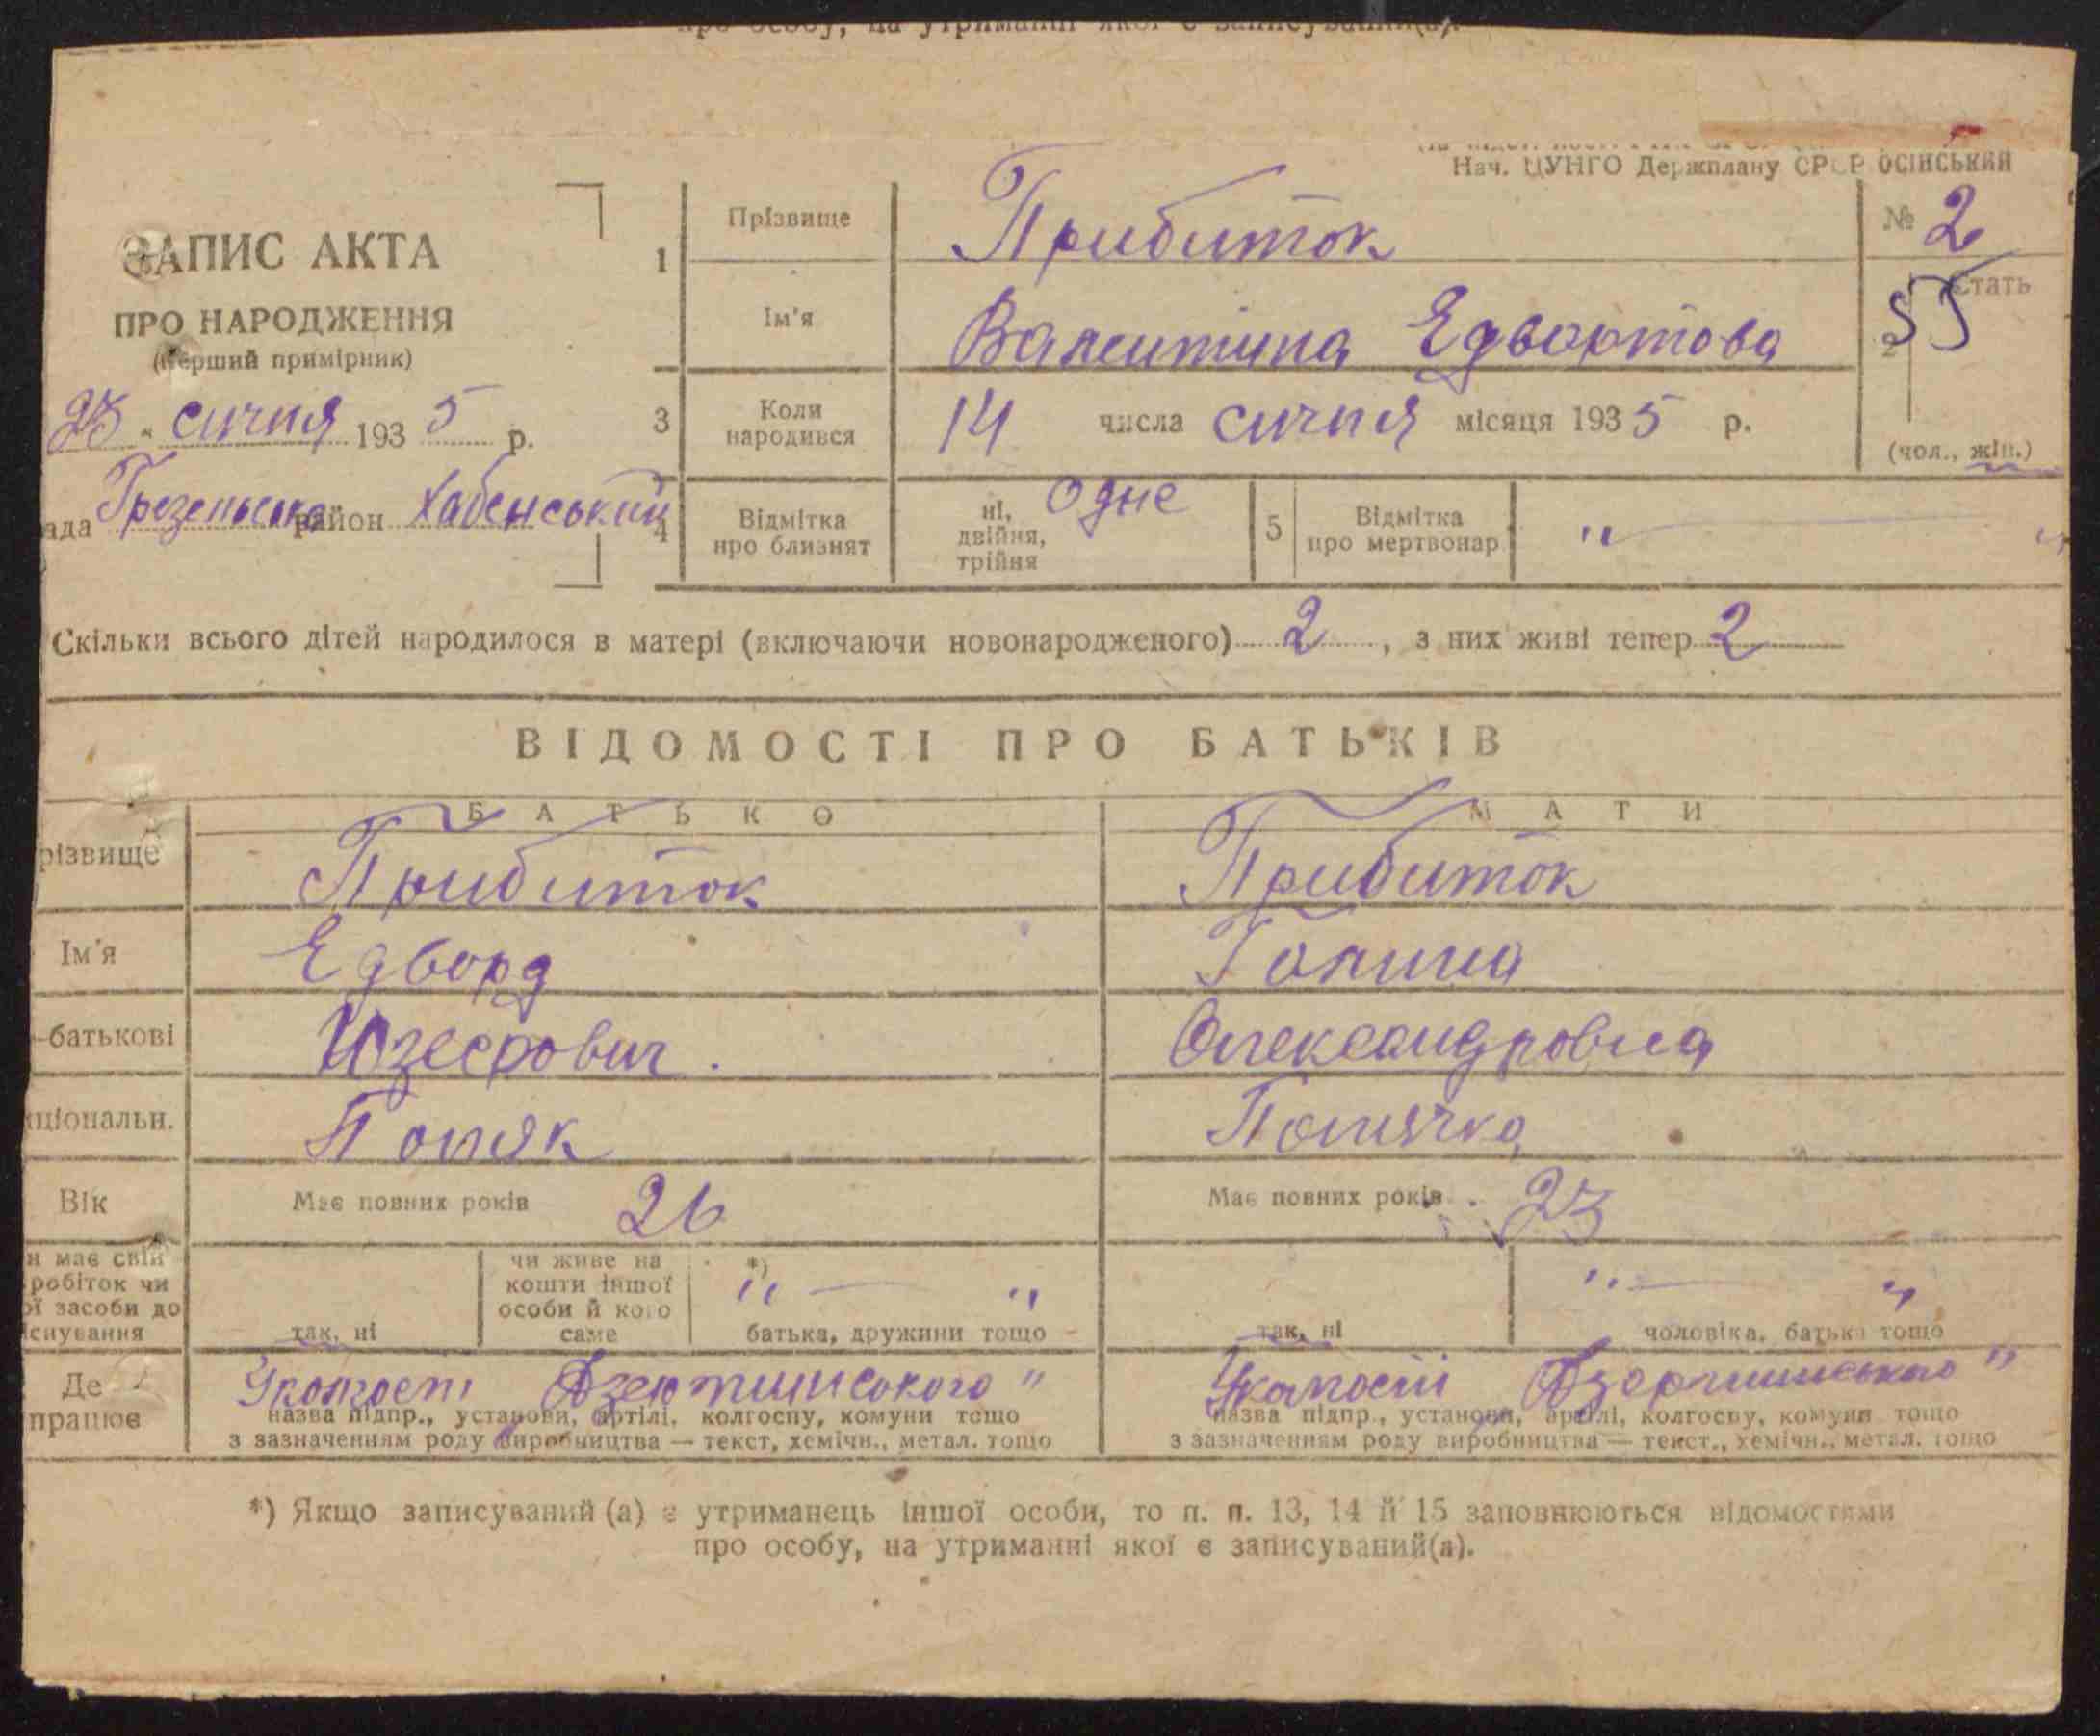 про особу, на утриманні якої є записуваний(а).
Нач. ЦУНГО Держплану СРСР ОСІНСЬКИЙ
ЗАПИС АКТА
ПРО НАРОДЖЕННЯ
(перший примірник)
23 " січня 1935 р.
ада Грезенська район Хабенський
1 Прізвище Прибиток
№ 2
Ім'я Валентина Едвартова
2 Стать
55
(чол., жін.)
3 Коли народився 14 числа січня місяця 1935 р.
4 Відмітка про близнят ні, двійня, трійня одне
5 Відмітка про мертвонар. " — "
Скільки всього дітей народилося в матері (включаючи новонародженого) 2, з них живі тепер 2
ВІДОМОСТІ ПРО БАТЬКІВ
БАТЬКО МАТИ
різвище Прибиток Прибиток
Ім'я Едвард Галина
-батькові Юзефович. Олександровна
ціональн. Поляк Полячка
Вік Має повних років 26 Має повних років 23
н має свій
робіток чи
ої засоби до
існування
так, ні
чи живе на
кошти іншої
особи й кого
саме
*) " — "
батька, дружини тощо
так, ні
" — "
чоловіка, батька тощо
Де працює
Уколгоспі Дзержинського "
назва підпр., установи, артілі, колгоспу, комуни тощо
з зазначенням роду виробництва — текст, хемічн., метал. тощо
Уколгоспі Дзержинського "
назва підпр., установи, артілі, колгоспу, комуни тощо
з зазначенням роду виробництва — текст., хемічн., метал. тощо
*) Якщо записуваний (а) є утриманець іншої особи, то п. п. 13, 14 й 15 заповнюються відомостями
про особу, на утриманні якої є записуваний(а).